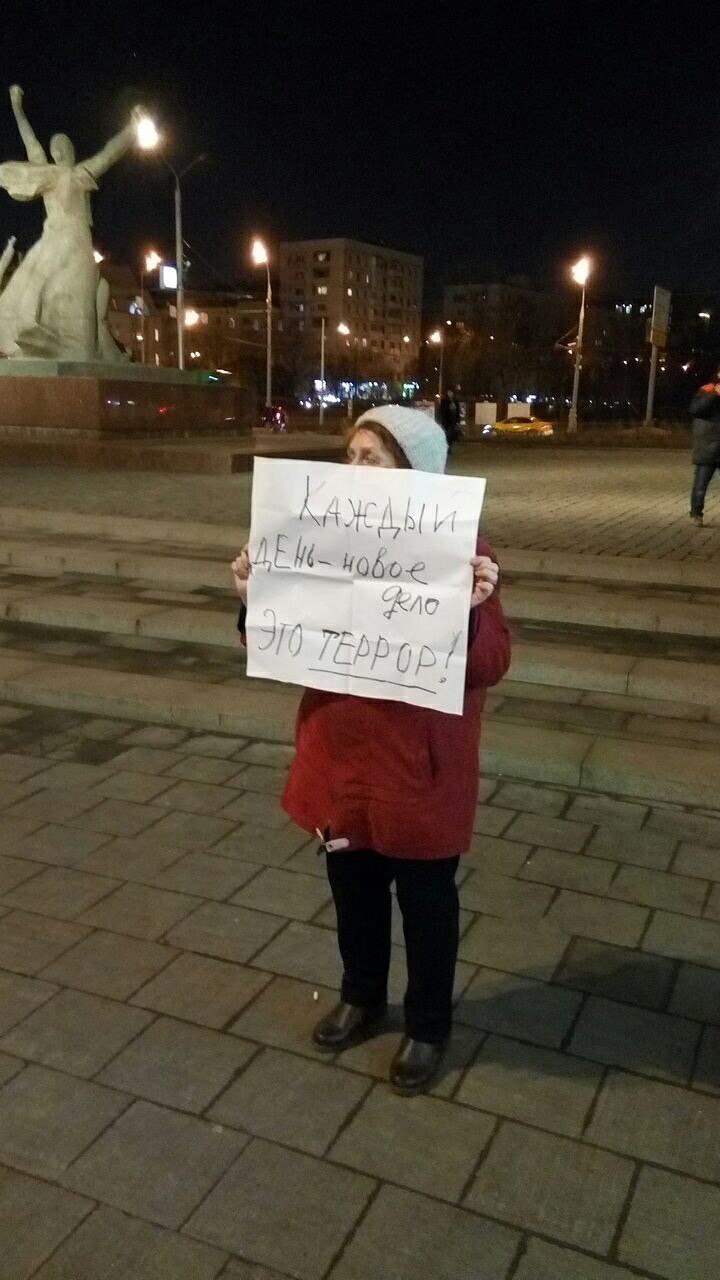 КАЖДЫЙ
ДЕНЬ - новое
дело
ЭТО ТЕРРОР!